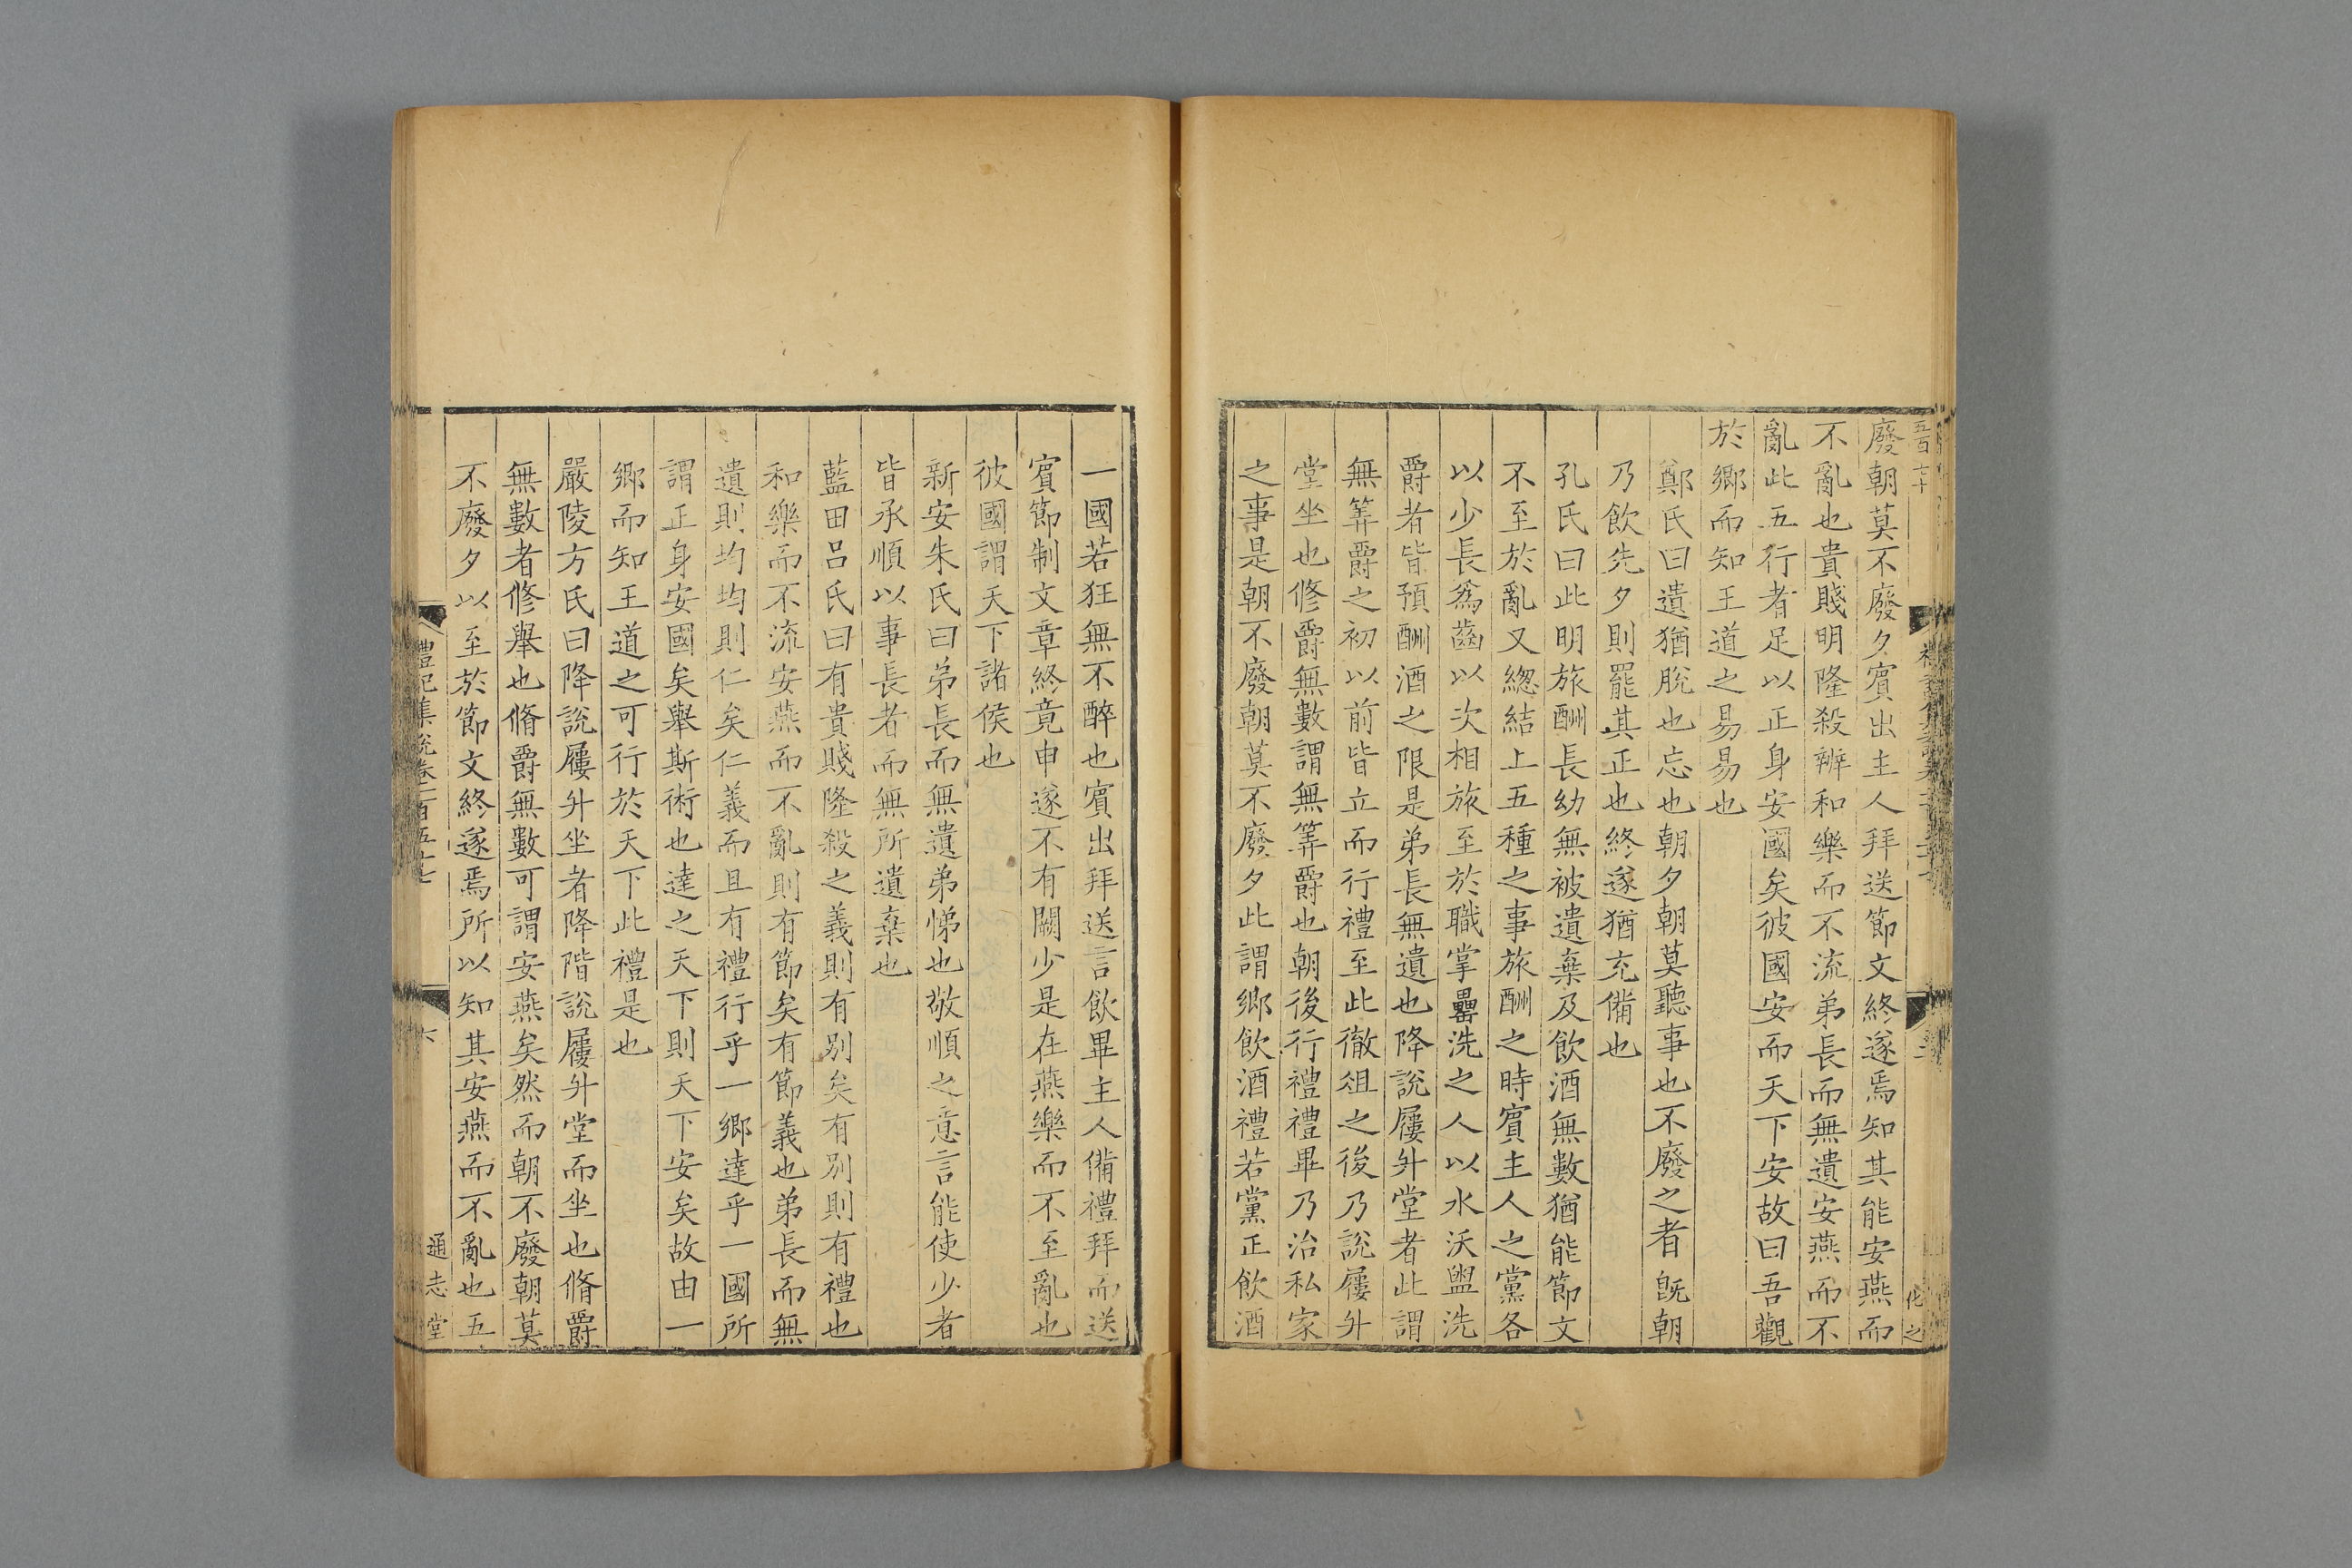 五百七十
廢朝莫不廢夕賔出主人拜送節文終遂焉知其能安燕而
不亂也貴賤明隆殺辨和樂而不流弟長而無遺安燕而不
亂此五行者足以正身安國矣彼國安而天下安故曰吾觀
於鄉而知王道之易易也
鄭氏曰遺猶脫也忘也朝夕朝莫聽事也不廢之者旣朝
乃飲先夕則罷其正也終遂猶充備也
孔氏曰此明旅酬長幼無被遺棄及飲酒無數猶能節文
不至於亂又緫結上五種之事旅酬之時賔主人之黨各
以少長爲齒以次相旅至於職掌罍洗之人以水沃盥洗
爵者皆預酬酒之限是弟長無遺也降說屨升堂者此謂
無筭爵之初以前皆立而行禮至此徹俎之後乃說屨升
堂坐也修爵無數謂無筭爵也朝後行禮禮畢乃治私家
之事是朝不廢朝莫不廢夕此謂鄉飲酒禮若黨正飲酒
一國若狂無不醉也賔出拜送言飲畢主人備禮拜而送
賔節制文章終竟申遂不有闕少是在燕樂而不至亂也
彼國謂天下諸侯也
新安朱氏曰弟長而無遺弟悌也敬順之意言能使少者
皆承順以事長者而無所遺棄也
藍田呂氏曰有貴賤隆殺之義則有別矣有別則有禮也
和樂而不流安燕而不亂則有節矣有節義也弟長而無
遺則均均則仁矣仁義而且有禮行乎一鄉達乎一國所
謂正身安國矣舉斯術也達之天下則天下安矣故由一
鄉而知王道之可行於天下此禮是也
嚴陵方氏曰降說屨升坐者降階說屨升堂而坐也脩爵
無數者修舉也脩爵無數可謂安燕矣然而朝不廢朝莫
不廢夕以至於節文終遂焉所以知其安燕而不亂也五
禮記集說卷一百五十七
六
通志堂